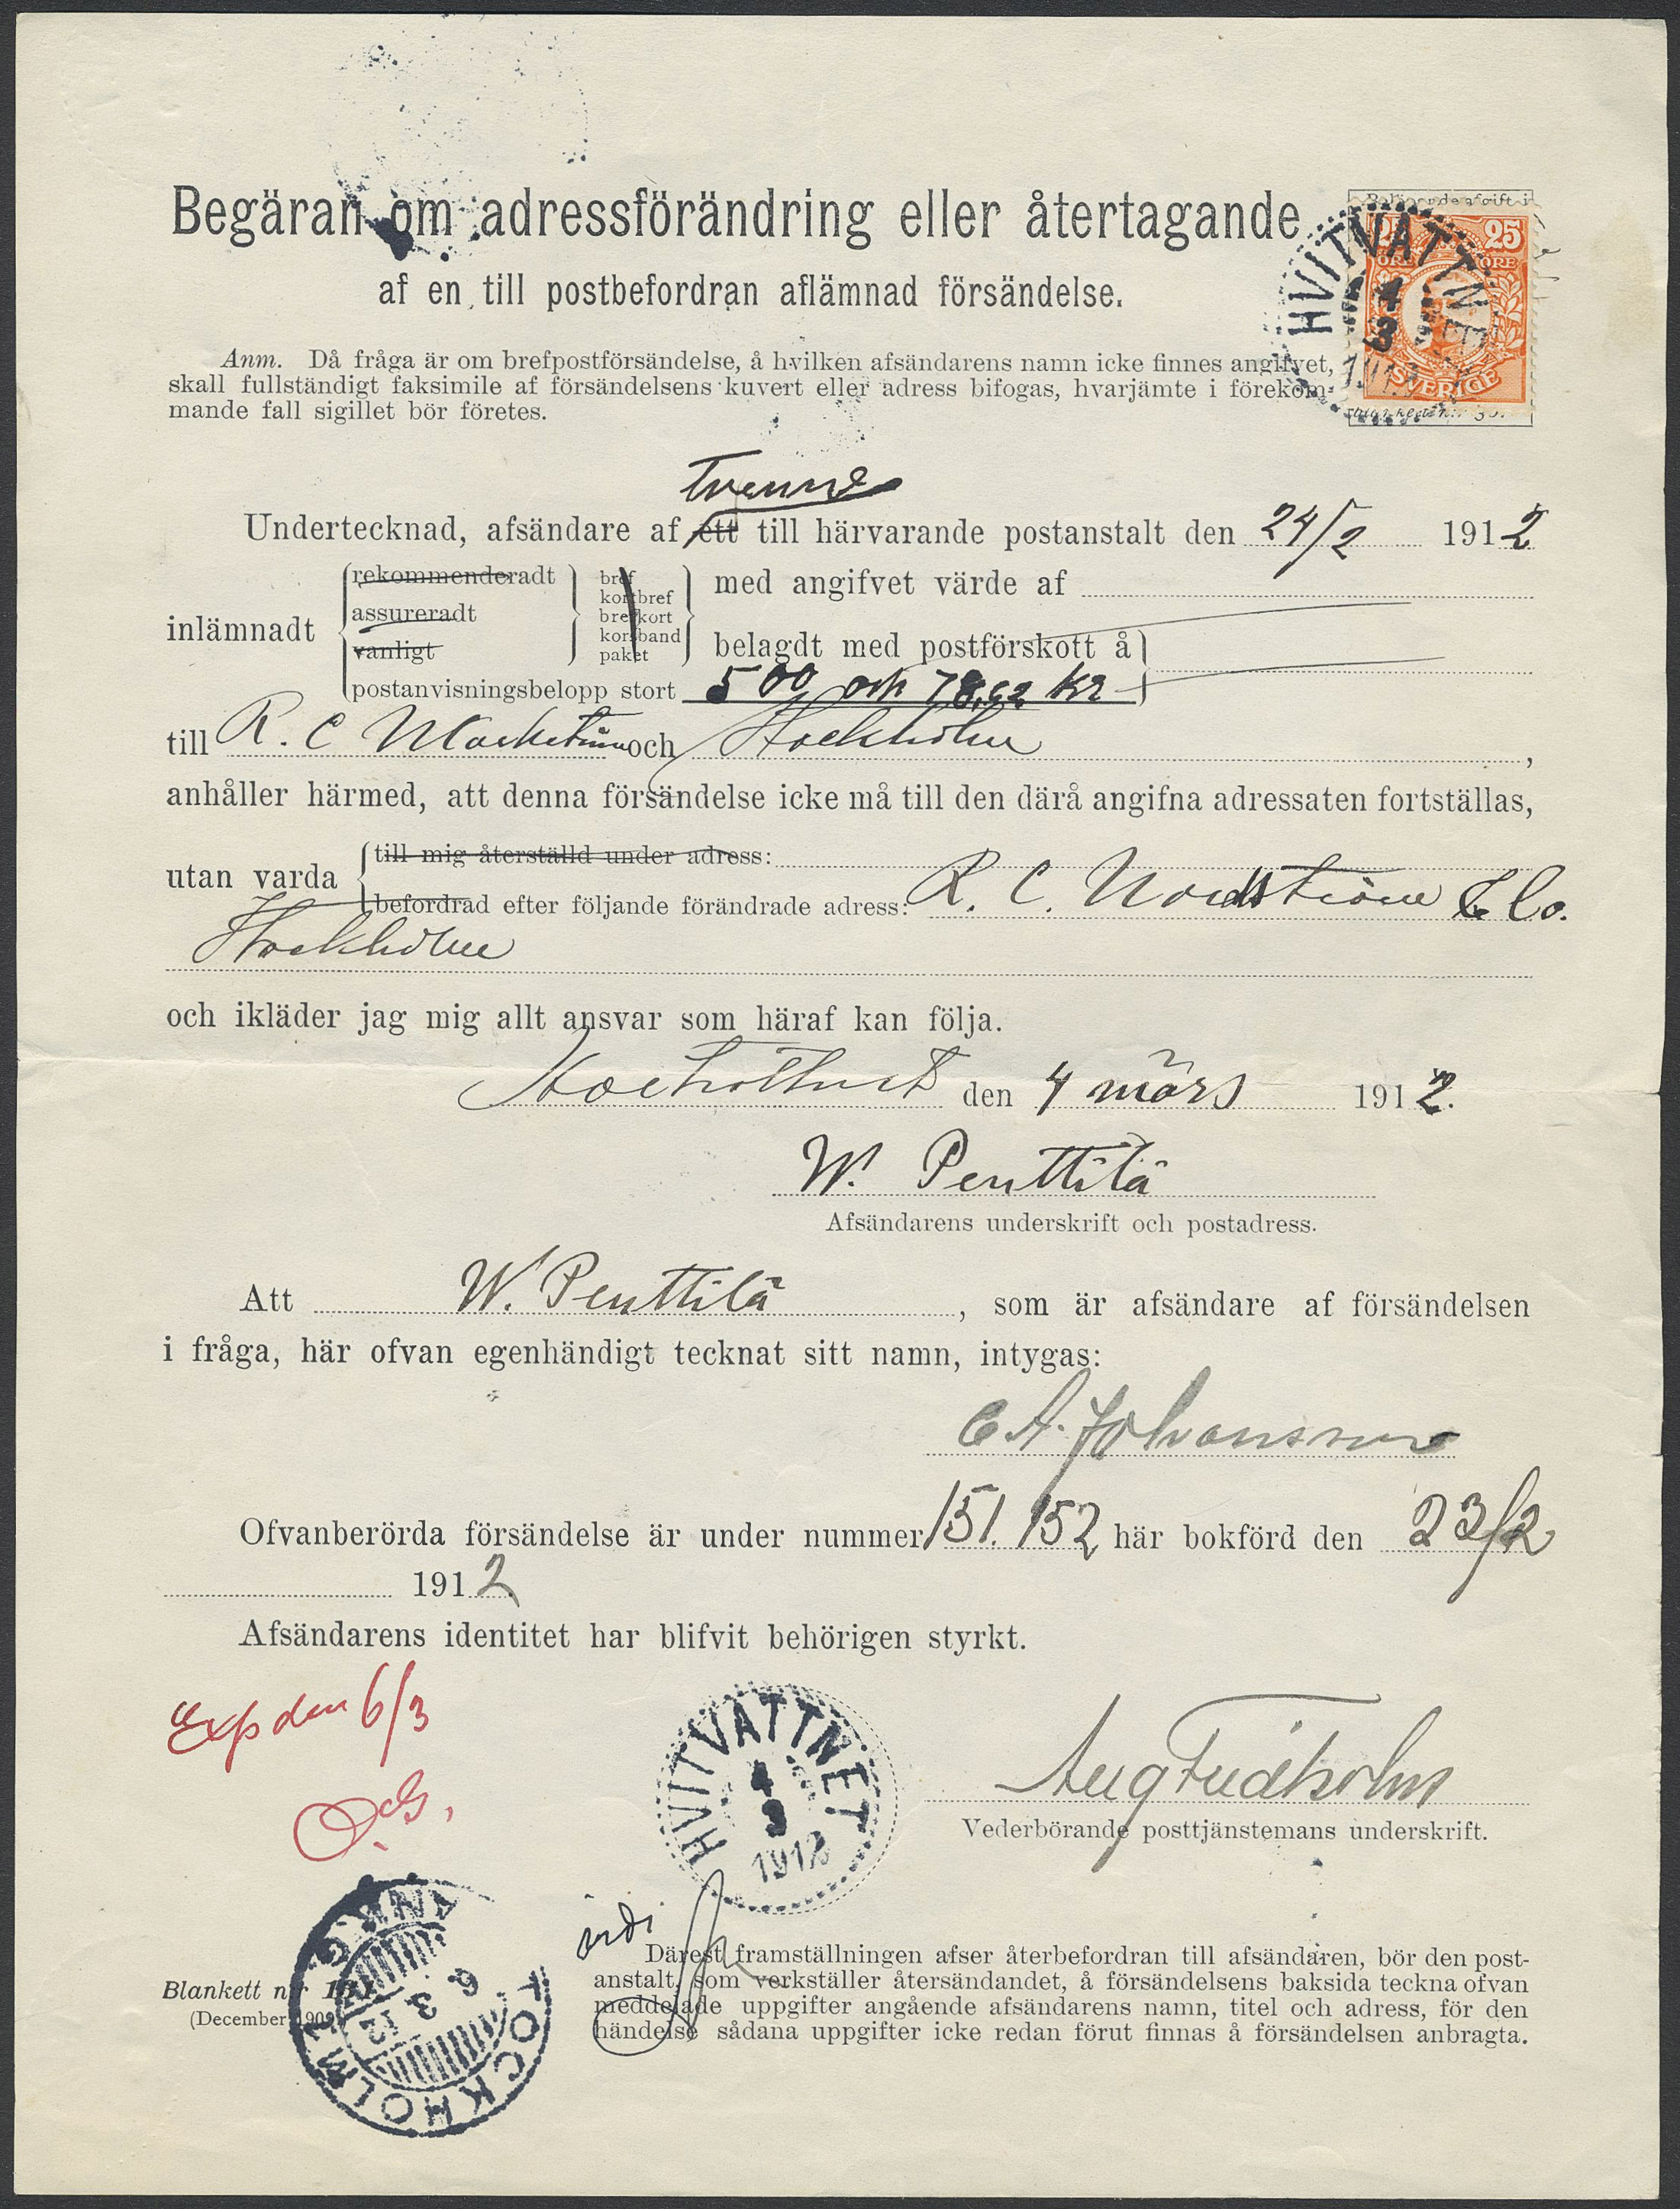 Begäran om adressförändring eller återtagande
af en till postbefordran aflämnad försändelse.
25 25
ÖRE ÖRE
SVERIGE
HVITVATTNET
4
3
Anm. Då fråga är om brefpostförsändelse, å hvilken afsändarens namn icke finnes angifvet,
skall fullständigt faksimile af försändelsens kuvert eller adress bifogas, hvarjämte i förekom-
mande fall sigillet bör företes.
Tvenne
Undertecknad, afsändare af ett till härvarande postanstalt den 24/2 1912
inlämnadt
rekommenderadt
assureradt
vanligt
bref
kortbref
brefkort
korsband
paket
med angifvet värde af
belagdt med postförskott å
postanvisningsbelopp stort 500 och 78,62 Kr
till R. C och Stockholm,
anhåller härmed, att denna försändelse icke må till den därå angifna adressaten fortställas,
utan varda
till mig återställd under adress:
befordrad efter följande förändrade adress: R. C. Nordström & Co.
Stockholm
och ikläder jag mig allt ansvar som häraf kan följa.
den 4 mars 1912.
W. Penttilä
Afsändarens underskrift och postadress.
Att W. Penttilä, som är afsändare af försändelsen
i fråga, här ofvan egenhändigt tecknat sitt namn, intygas:
C A. Johansson
Ofvanberörda försändelse är under nummer 151. 152 här bokförd den 23/2
1912
Afsändarens identitet har blifvit behörigen styrkt.
Exp den 6/3
HVITVATTNET
4
3
1912
Aug Fridholm
Vederbörande posttjänstemans underskrift.
Därest framställningen afser återbefordran till afsändaren, bör den post-
anstalt, som verkställer återsändandet, å försändelsens baksida teckna ofvan
meddelade uppgifter angående afsändarens namn, titel och adress, för den
händelse sådana uppgifter icke redan förut finnas å försändelsen anbragta.
Blankett nr
(December 1909
STOCKHOLM 1
ANK
6. 3. 12